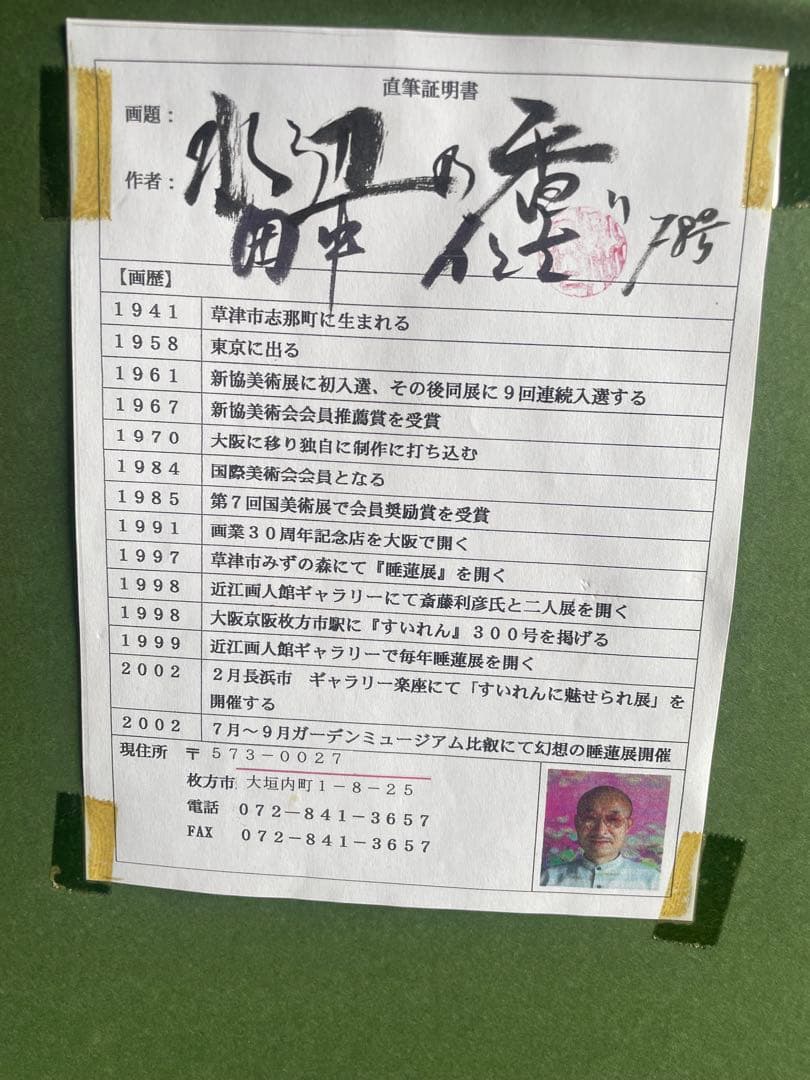 直筆証明書
画題: 水辺の香り F8号
作者: 田中
【画歴】
1941 草津市志那町に生まれる
1958 東京に出る
1961 新協美術展に初入選、その後同展に9回連続入選する
1967 新協美術会会員推薦賞を受賞
1970 大阪に移り独自に制作に打ち込む
1984 国際美術会会員となる
1985 第7回国美術展で会員奨励賞を受賞
1991 画業30周年記念店を大阪で開く
1997 草津市みずの森にて『睡蓮展』を開く
1998 近江画人館ギャラリーにて斎藤利彦氏と二人展を開く
1998 大阪京阪枚方市駅に『すいれん』300号を掲げる
1999 近江画人館ギャラリーで毎年睡蓮展を開く
2002 2月長浜市 ギャラリー楽座にて「すいれんに魅せられ展」を
開催する
2002 7月~9月ガーデンミュージアム比叡にて幻想の睡蓮展開催
現住所 〒573-0027
枚方市 大垣内町1-8-25
電話 072-841-3657
FAX 072-841-3657